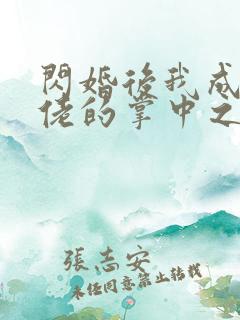 閃婚後我成
佬的掌中之
張志安
未經同意禁止轉載